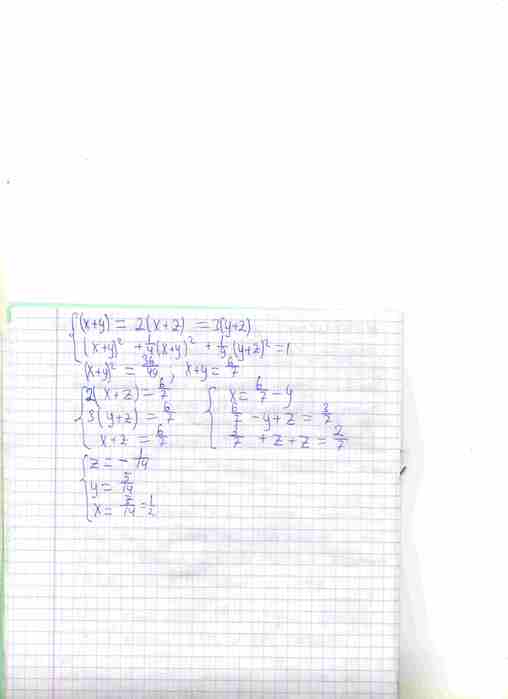 (x+y) = 2(x+z) = 3(y+z)
(x+y)² + 1/4(x+y)² + 1/9(y+z)² = 1
(x+y)² = 36/49; x+y = 6/7
2(x+z) = 6/7
3(y+z) = 6/7
x+z = 6/7
x = 6/7 - y
6/7 - y + z = 3/7
+ z + z = 2/7
z = - 1/14
y = 5/14
x = 7/14 = 1/2